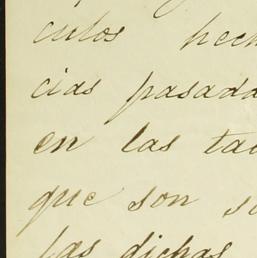 culos hech
cias pasada
en las ta
que son s
las dichas